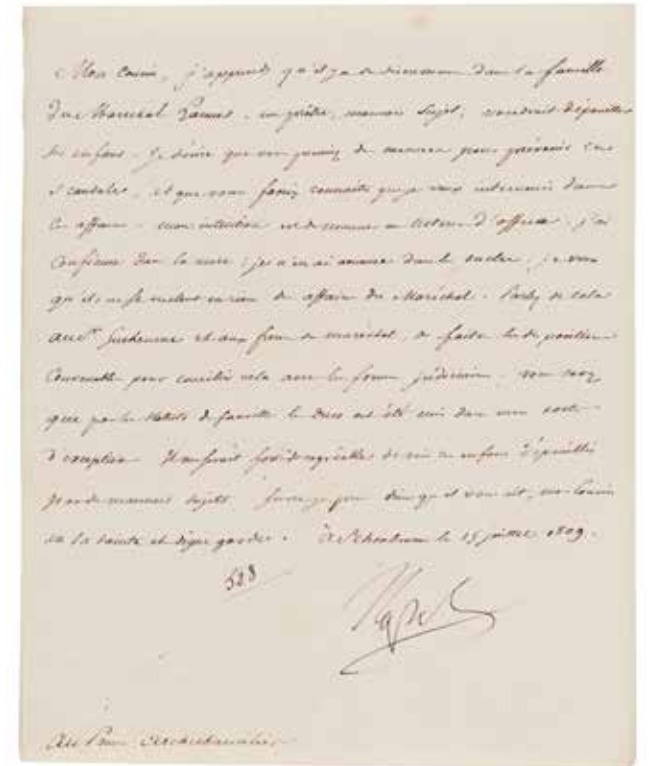 Mon Cousin, j'apprends qu'il y a de discussion dans la famille
du Maréchal Lannes. un prêtre, mauvais Sujet, voudrait dépouiller
les enfans. Je désire que vous preniez des mesures pour prévenir ces
scandales, et que vous fassiez connaître que je veux intervenir dans
ces affaires. mon intention est de nommer un tuteur d'office. j'ai
confiance dans la mère; je n'en ai aucune dans les oncles. je veux
qu'ils ne se mêlent en rien des affaires du Maréchal. Parlez de cela
au et aux du maréchal, et faites les dispositions
convenables pour concilier cela avec les formes judiciaires. vous savez
que par les Statuts de famille les Ducs ont été mis dans une sorte
d'exception. Il me serait fort désagréable de voir ces enfans dépouillés
par de mauvais sujets. Sur ce je prie dieu qu'il vous ait, mon Cousin
en sa sainte et digne garde. à Schonbrunn le 15 juillet 1809.
528
Nap
Au Prince Archichancelier